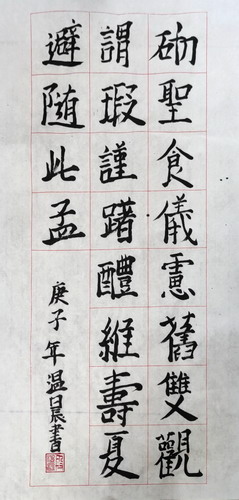 砌聖食儀憲舊雙觀
謂瑕謹躇醴維壽夏
避随此孟
庚子年温日晨書